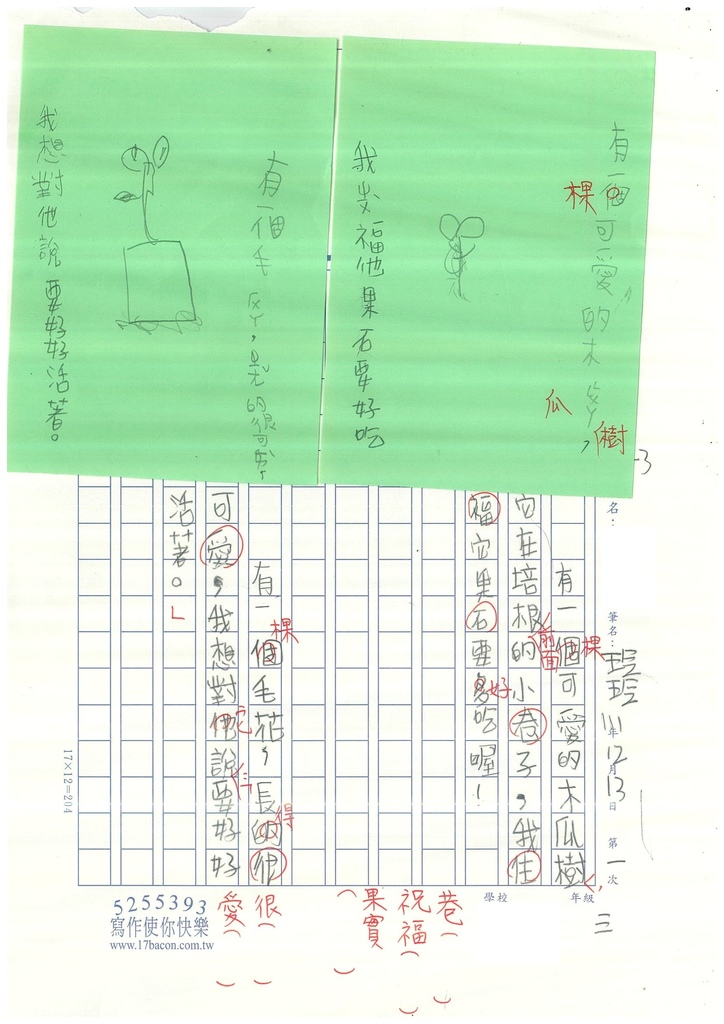 有一個可愛的木ㄍㄨㄚ,
棵
瓜
樹
福他果石要好吃
有一個毛
的很可愛,
我想對他說要好好活著。
名:
筆名:
瑄瑄
111年12月13日
第一次
年級
三
學校
有一個可愛的木瓜樹
棵
它在培根的小巷子,我住
前面
福它果石要多吃喔!
好
有一個毛花,長的很
棵
得
可愛,我想對他說要好好
它
活著。」
巷(
祝福(
果實(
很(
愛(
17×12=204
5255393
寫作使你快樂
www.17bacon.com.tw